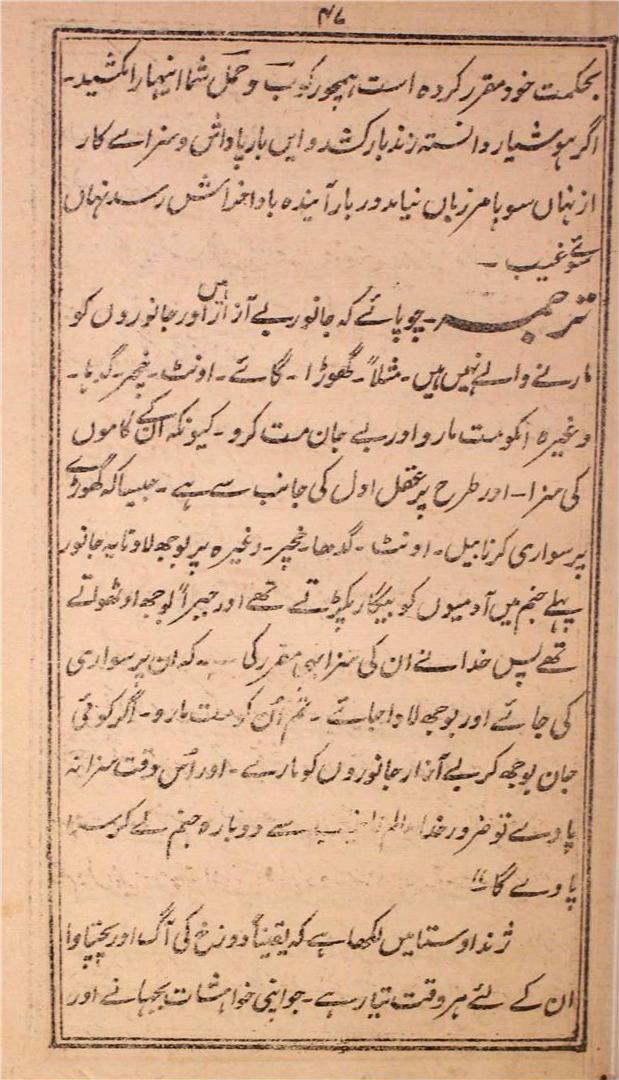 ۴۷
بحکمت خود مقرر کردہ است ہمچو رکوب و حمل شما اینہا را مکشید۔
اگر ہوشیار دانستہ زند بار کشد و ایں بار پاداش و سزائے کار
از نہاں سو بامرزباں نیابد در بار آیندہ باد افراشش رسد نہاں
سوئے غیب ۔
ترجمہ ۔ چوپائے کہ جانور بے آزار ہیں اور جانوروں کو
مارنے والے نہیں ہیں ۔ مثلاً ۔ گھوڑا ۔ گائے ۔ اونٹ ۔ خچر ۔ گدہا ۔
وغیرہ انکو مت مارو اور بے جان مت کرو ۔ کیونکہ ان کے کاموں
کی سزا ۔ اور طرح پر عقل اول کی جانب سے ہے ۔ جیسا کہ گھوڑے
پر سواری کرنا بیل ۔ اونٹ ۔ گدھا ۔ خچر ۔ وغیرہ پر بوجھ لادنا یہ جانور
پہلے جنم میں آدمیوں کو بیگار پکڑتے تھے اور جبراً بوجھ اوٹھواتے
تھے پس خدا نے ان کی سزا یہی مقرر کی ۔۔ کہ ان پر سواری
کی جائے اور بوجھ لادا جائے ۔ تم اُن کو مت مارو ۔ اگر کوئی
جان بوجھ کر بے آزار جانوروں کو مارے ۔ اور اُس وقت سزا نہ
پاوے تو ضرور خدا سے دوبارہ جنم لے کر سزا
پاوے گا
ژند اوستا میں لکھا ہے کہ یقیناً دوزخ کی آگ اور پچتاوا
ان کے لئے ہر وقت تیار ہے ۔ جو اپنی خواہشات بجہانے اور